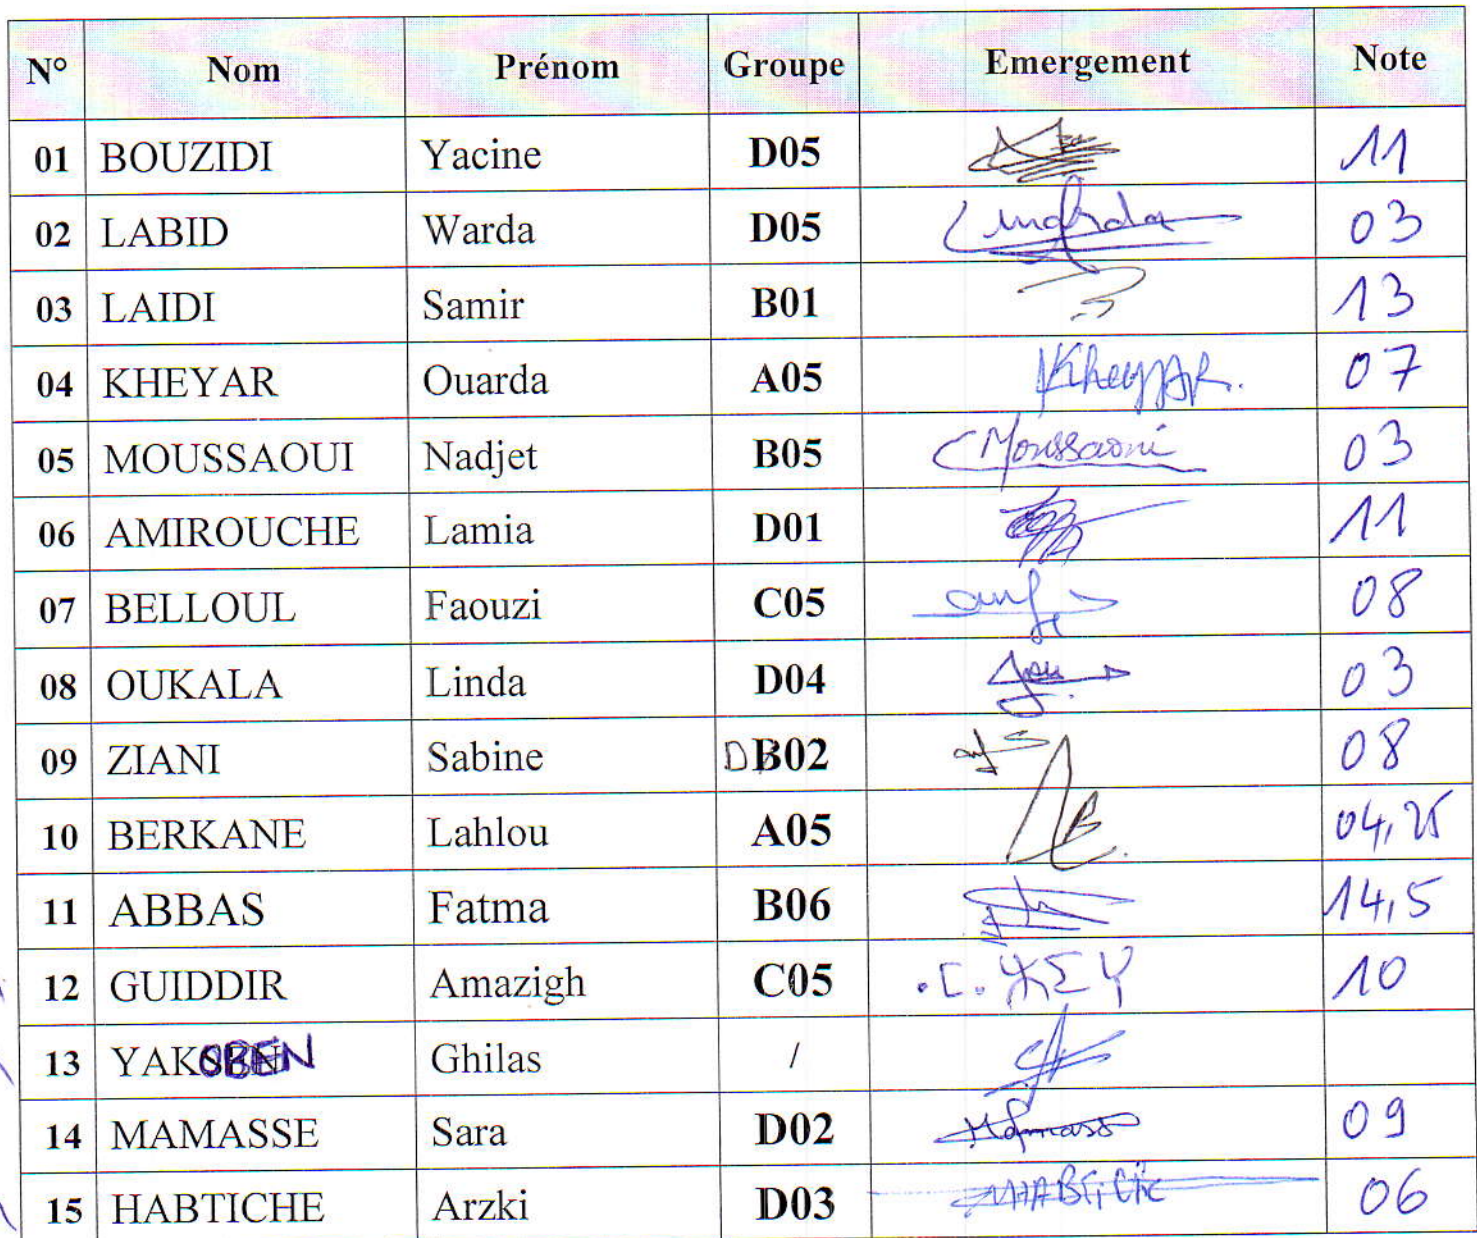 N° Nom Prénom Groupe Emergement Note
01 BOUZIDI Yacine D05 11
02 LABID Warda D05 03
03 LAIDI Samir B01 13
04 KHEYAR Ouarda A05 Kheyar. 07
05 MOUSSAOUI Nadjet B05 Moussaoui 03
06 AMIROUCHE Lamia D01 11
07 BELLOUL Faouzi C05 08
08 OUKALA Linda D04 03
09 ZIANI Sabine B02 08
10 BERKANE Lahlou A05 04,25
11 ABBAS Fatma B06 14,5
12 GUIDDIR Amazigh C05 10
13 Ghilas /
14 MAMASSE Sara D02 Mamasse 09
15 HABTICHE Arzki D03 06